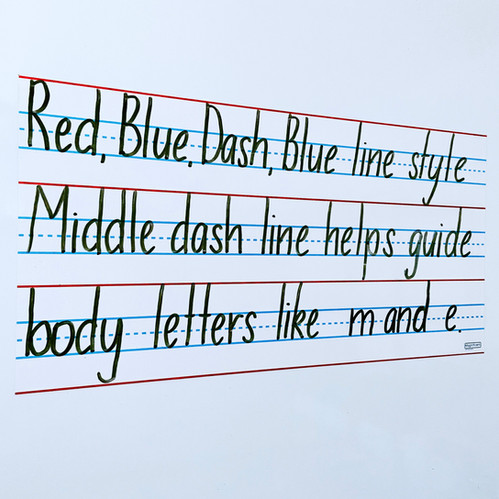 Red, Blue, Dash, Blue line style
Middle dash line helps guide
body letters like m and e.